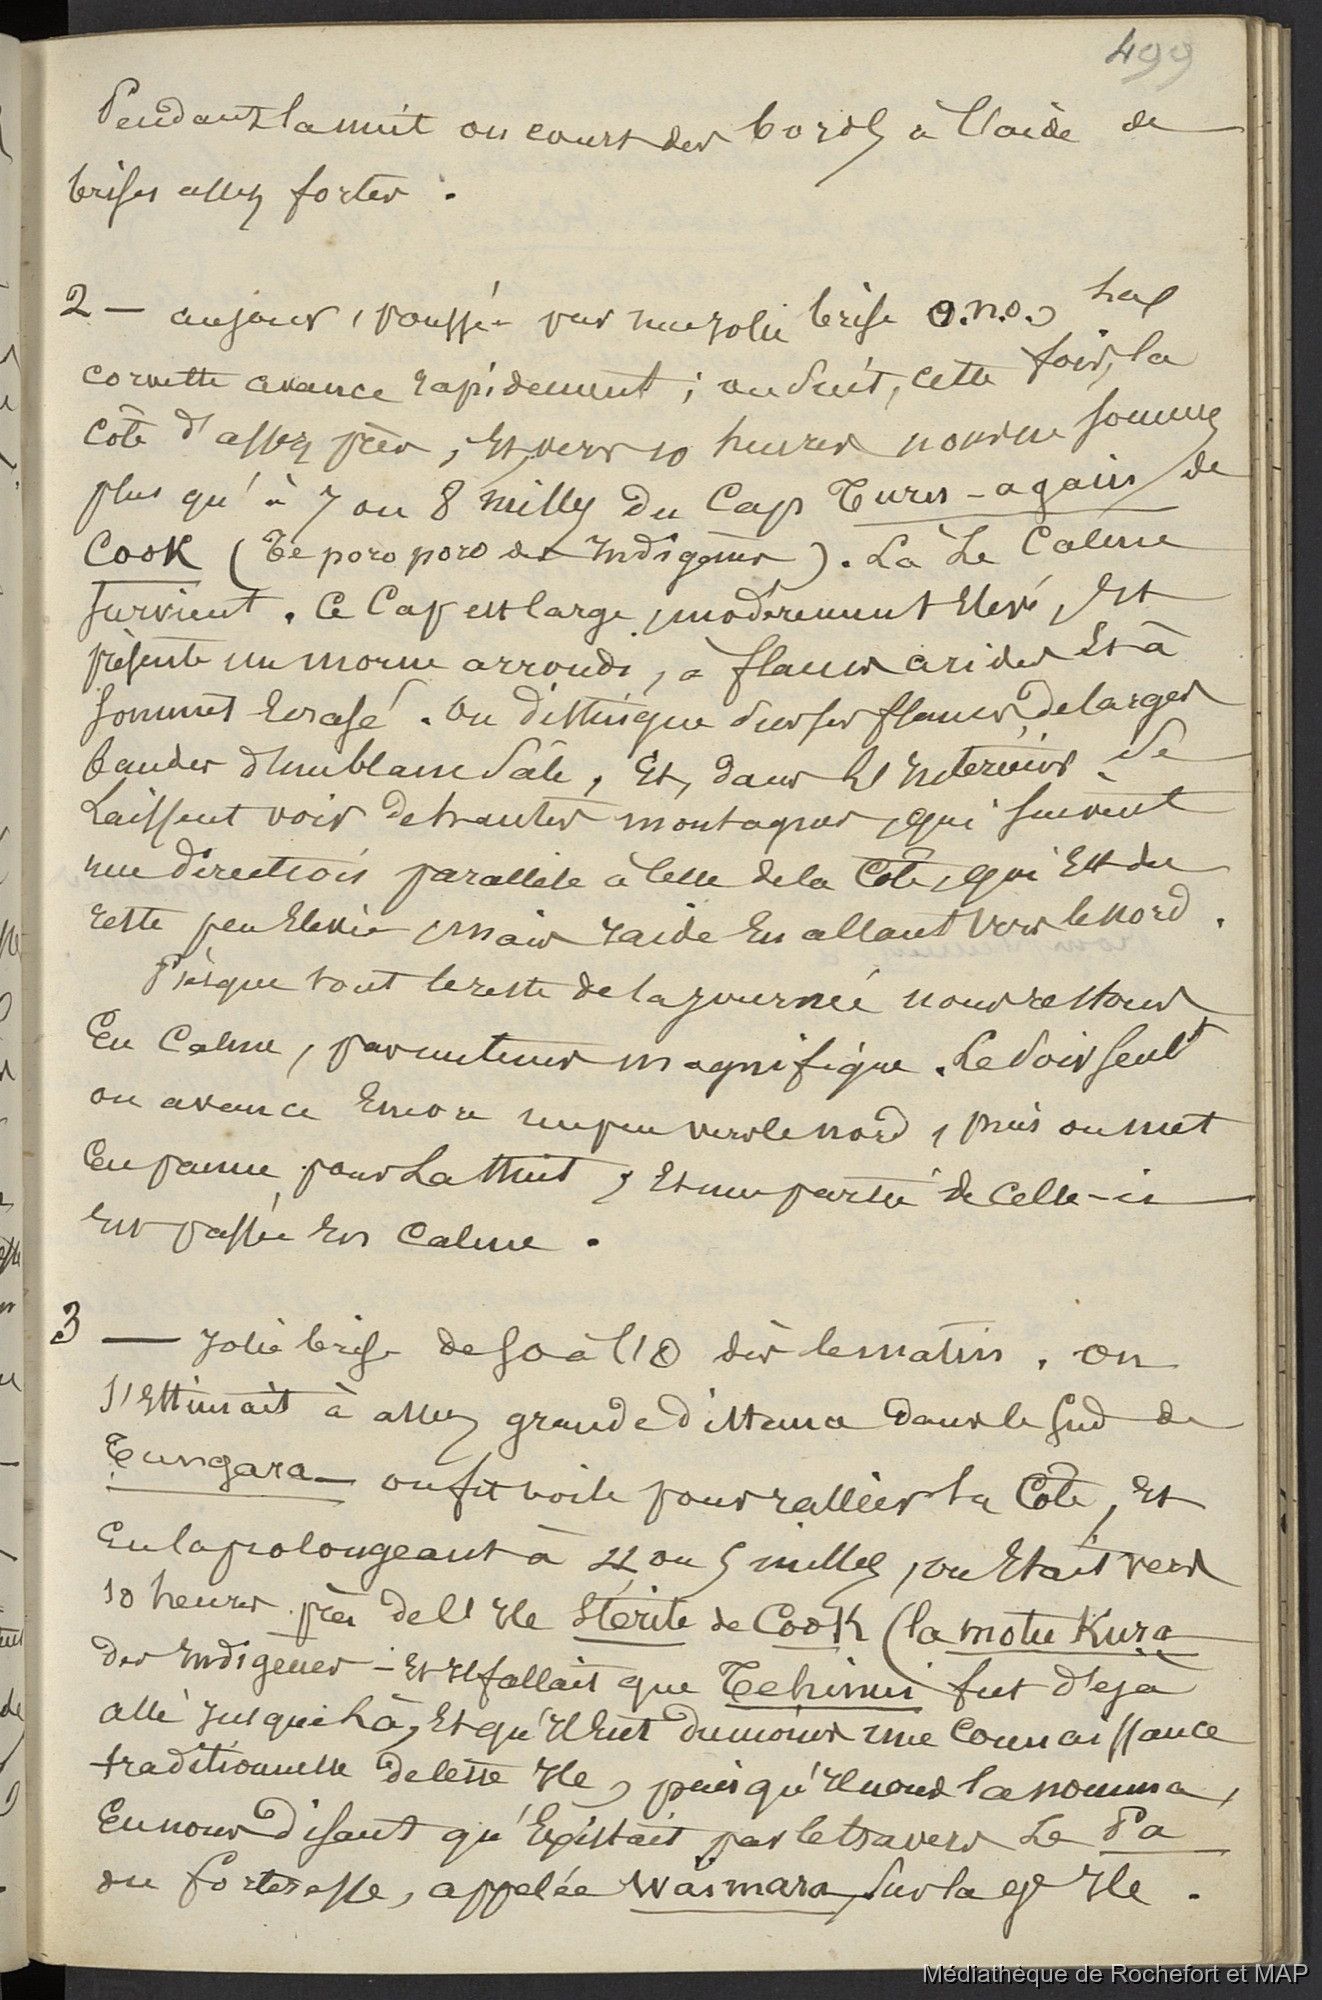 499
Pendant la nuit on court des bords à l'aide de
brises assez fortes.
2 — au jour, poussée par une jolie brise o.n.o., la
corvette avance rapidement; on suit, cette fois, la
côte d'assez près, et, vers 10 heures nous ne sommes
plus qu'à 7 ou 8 milles du Cap Turn-again de
Cook (Te poro poro des Indigènes). Là le Calme
survient. Ce Cap est large, modérement élevé, et
présente un morne arrondi, à flancs arides et à
sommet écrasé. On distingue sur ses flancs, de larges
bandes d'un blanc sale, et, dans l'intérieur se
laissent voir de hautes montagnes, qui suivent
une direction parallèle à celle de la Côte, qui est du
reste peu élevée, mais raide en allant vers le nord.
Présque tout le reste de la journée nous restons
en Calme, par un tems magnifique. Le soir seult
on avance encore un peu vers le nord, puis on met
en panne pour la Nuit, et une partie de celle-ci
est passée en Calme.
3 — Jolie brise de SO à l'O dès le matin. On
s'estimait à assez grande distance dans le Sud de
Tungara — on fit voile pour rallier la Côte, et
en la prolongeant à 4 ou 5 milles, on était vers
10 heures près de l'Ile Stérile de Cook (la motu Kura
des Indigenes — et il fallait que Tehinui fut déjà
allé jusque là, et qu'il eut du moins une connaissance
traditionnelle de cette Ile, puisqu'il nous la nomma,
en nous disant qu'existait par le travers le Pa
ou forteresse, appelée Waimara, sur la gde Ile.
Médiathèque de Rochefort et MAP